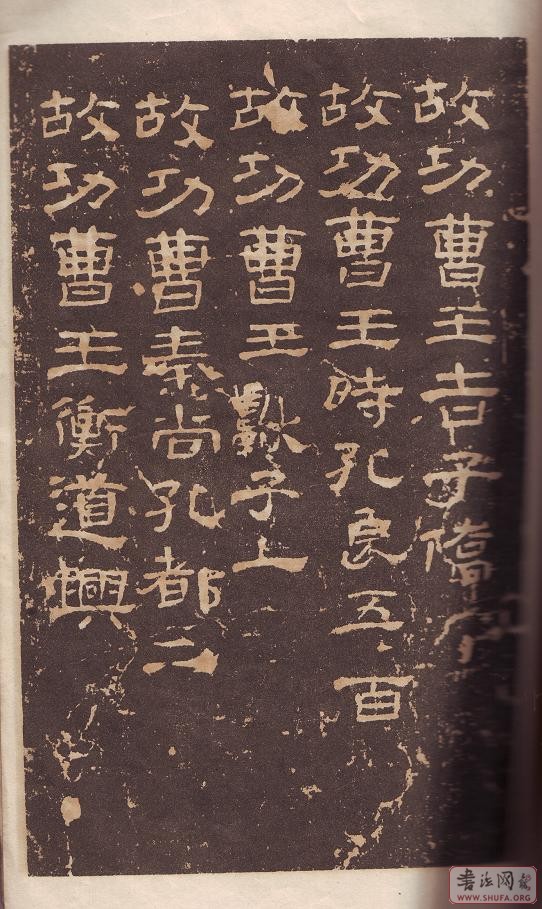 故功曹王吉子僑
故功曹王時孔良五百
故功曹王獻子上
故功曹秦尚孔都二
故功曹王衡道興
书法网
WWW.SHUFA.ORG